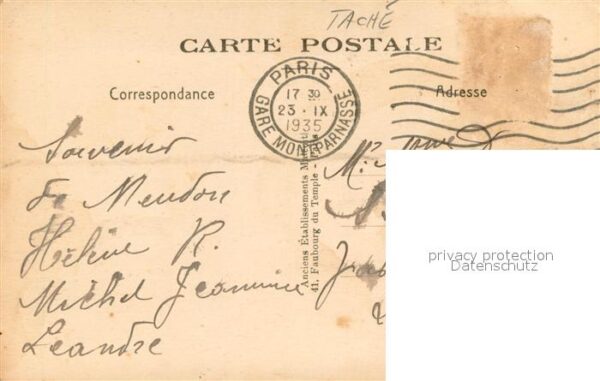 TACHÉ
CARTE POSTALE
PARIS
17 30
23 · IX
1935
GARE MONTPARNASSE
Correspondance
Adresse
Souvenir
de Meudon
Hélène R.
Michel Jeannine
Leandre
Anciens Etablissements
41, Faubourg du Temple -
privacy protection
Datenschutz